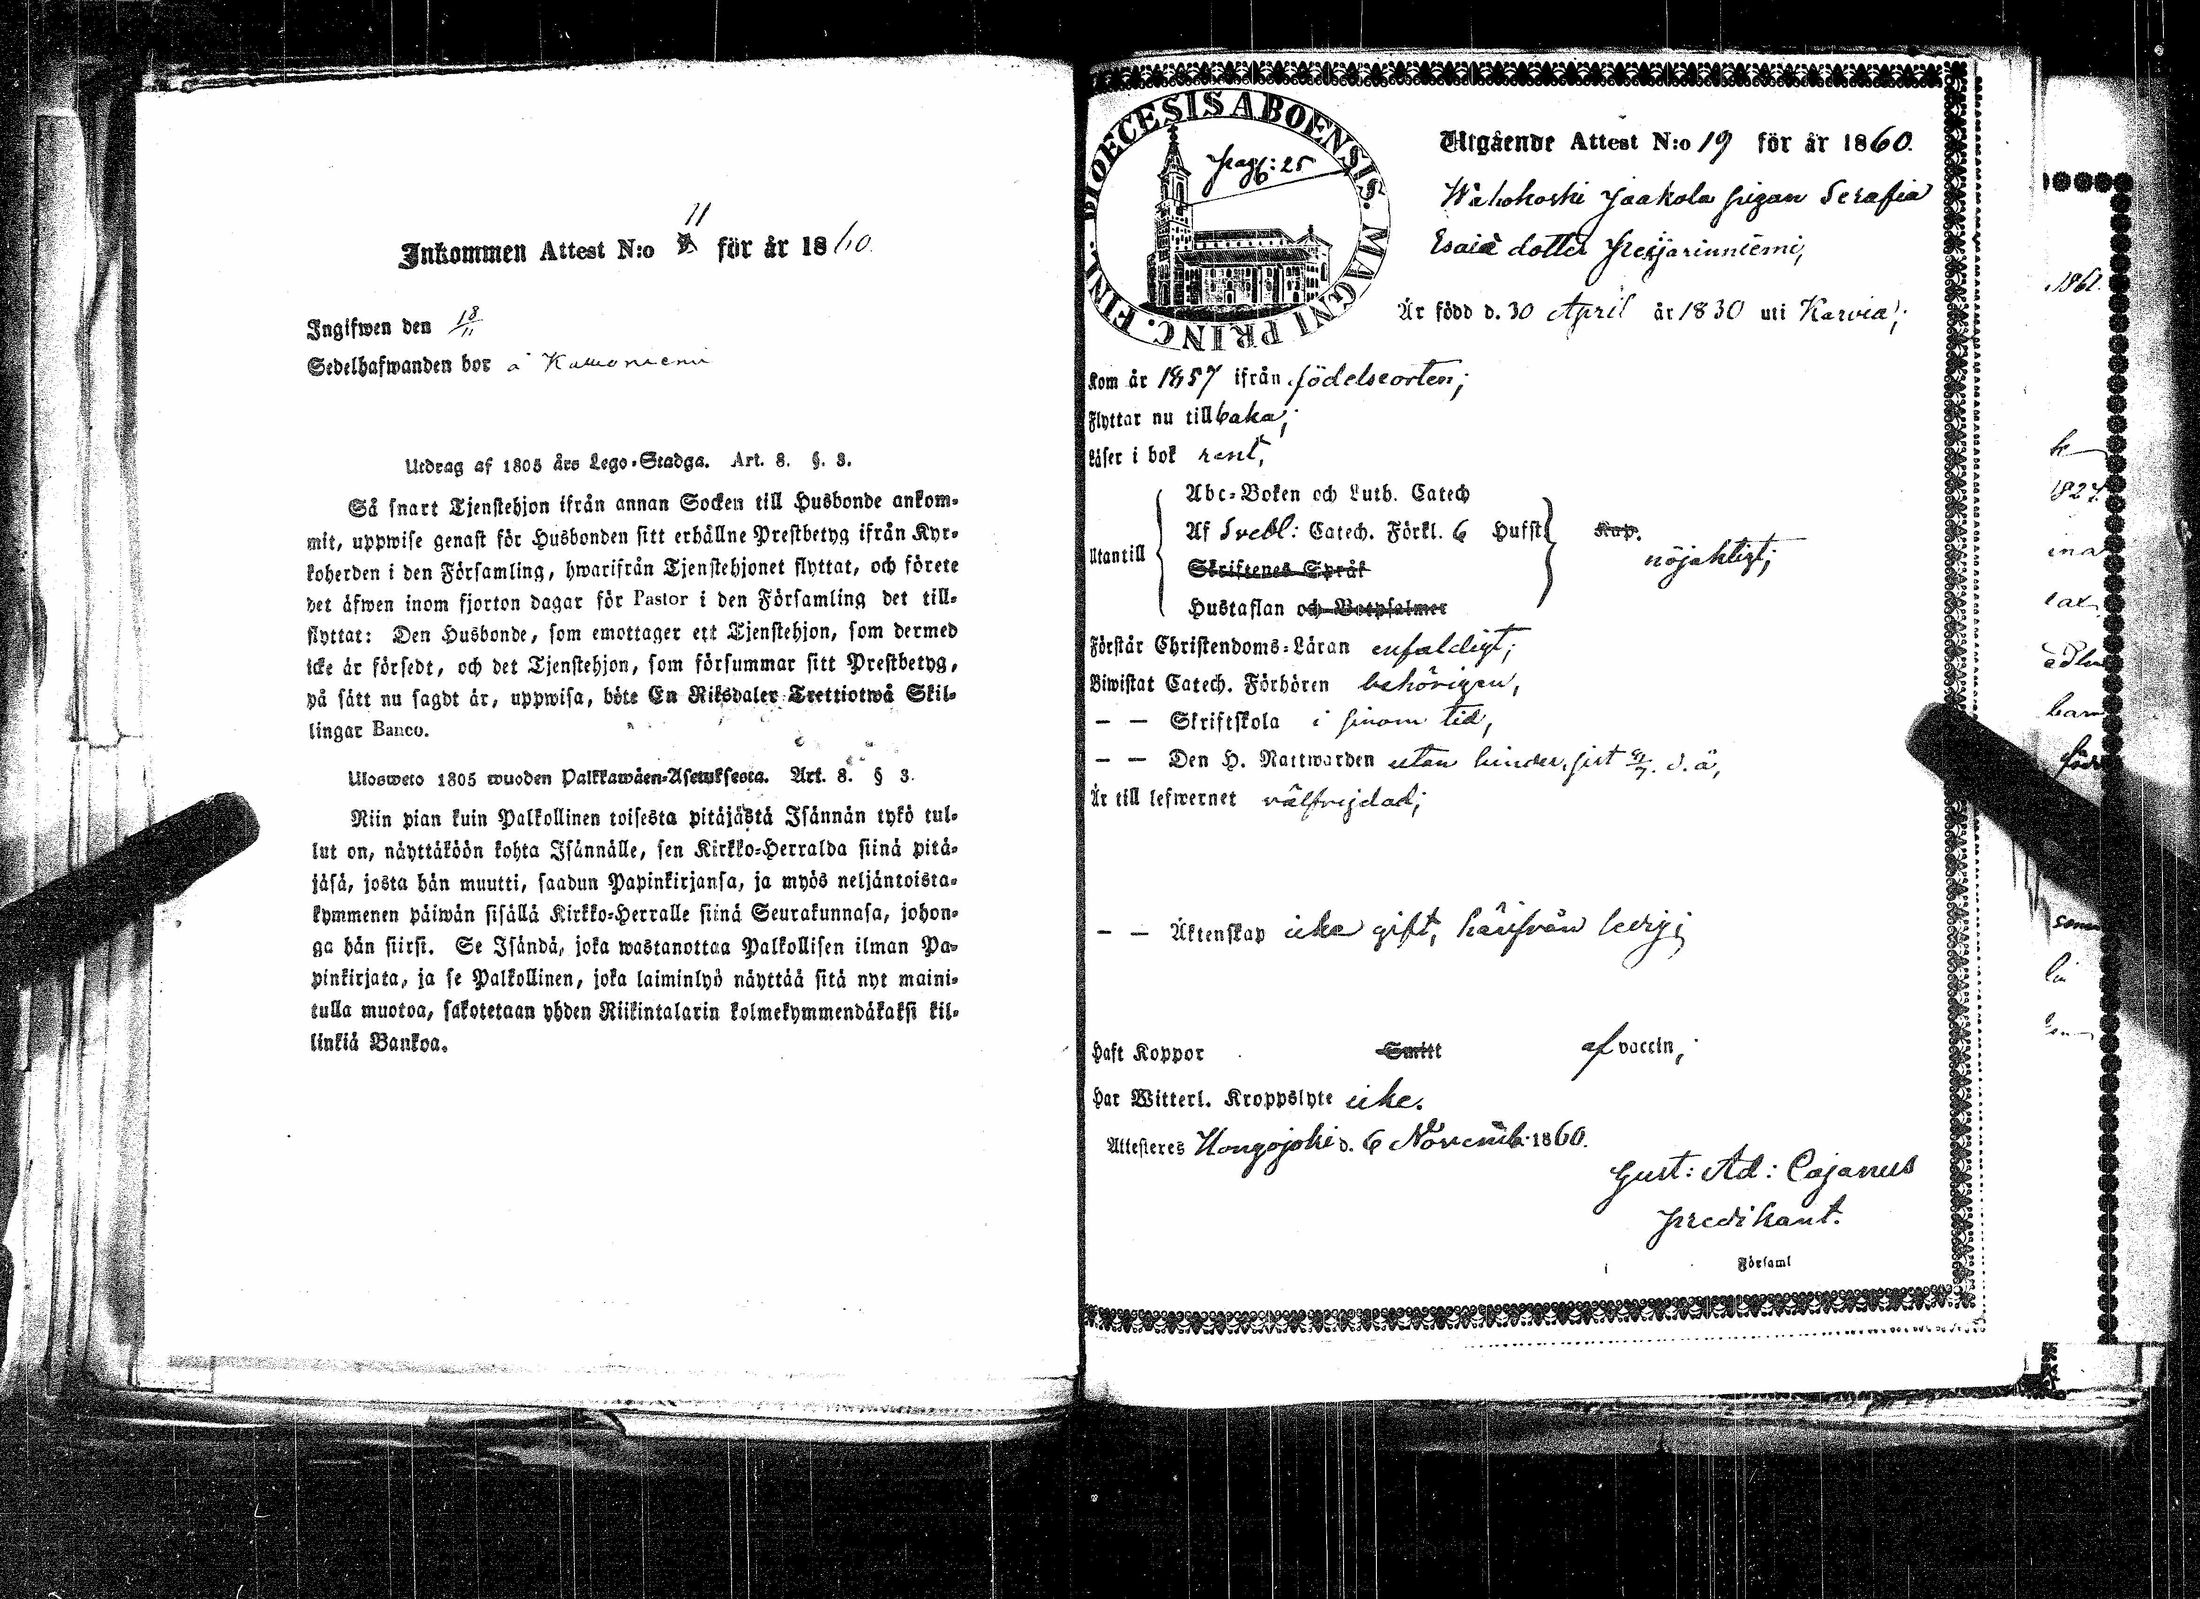 Inkommen Attest N:o 11 för år 1860.
Ingifwen den 18/11
Sedelhafwanden bor å
Utdrag af 1805 års Lego-Stadga. Art. 8. §. 3.
Så snart Tjenstehjon ifrån annan Socken till Husbonde ankom-
mit, uppwise genast för Husbonden sitt erhållne Prestbetyg ifrån Kyr-
koherden i den Församling, hwarifrån Tjenstehjonet flyttat, och förete
det äfwen inom fjorton dagar för Pastor i den Församling det till-
flyttat: Den Husbonde, som emottager ett Tjenstehjon, som dermed
icke är försedt, och det Tjenstehjon, som försummar sitt Prestbetyg,
på sätt nu sagdt är, uppwisa, böte En Riksdaler Trettiotwå Skil-
lingar Banco.
Ulosweto 1805 wuoden Palkkawäen-Asetuksesta. Art. 8. § 3.
Niin pian kuin Palkollinen toisesta pitäjästä Isännän tykö tul-
lut on, näyttäköön kohta Isännälle, sen Kirkko-Herralda siinä pitä-
jäsä, josta hän muutti, saadun Papinkirjansa, ja myös neljäntoista-
kymmenen päiwän sisällä Kirkko-Herralle siinä Seurakunnasa, johon-
ga hän siirsi. Se Isändä, joka wastanottaa Palkollisen ilman Pa-
pinkirjata, ja se Palkollinen, joka laiminlyö näyttää sitä nyt maini-
tulla muotoa, sakotetaan yhden Riikintalarin kolmekymmendäkaksi kil-
linkiä Bankoa.
DIOECESIS ABOENSIS. MAGNI PRINC. FINL.
pag: 25
Utgående Attest N:o 19 för år 1860.
Wähäkoski Jaakola pigan Serafia
Esaiä dotter
Är född d. 30 April år 1830 uti Karvia;
Kom år 1857 ifrån födelseorten;
Flyttar nu tillbaka;
Läser i bok rent,
Utantill
Abc-Boken och Luth. Catech
Af Svebl: Catech. Förkl. 6 Hufst. Kap.
nöjaktigt;
Skriftenes Språk
Hustaflan och Botpsalmer
Förstår Christendoms-Läran enfaldigt;
Biwistat Catech. Förhören behörigen,
— — Skriftskola i sinom tid,
— — Den H. Nattwarden utan hinder, sist d. å,
Är till lefwernet välfrejdad;
— — Äktenskap icke gift, härifrån ledig;
Haft Koppor Smitt af vaccin,
Har Witterl. Kroppslyte icke.
Attesteres Hongojoki d. 6 Novemb. 1860.
Gust: Ad: Cajanus
predikant.
Församl
1861.